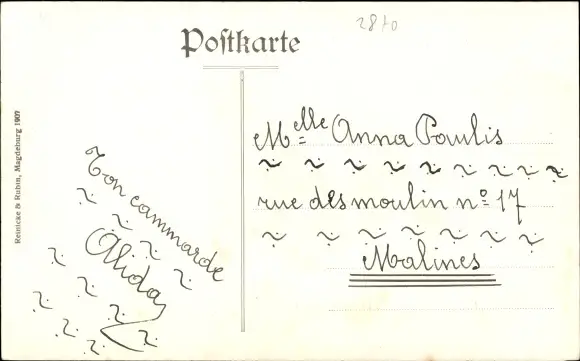 2870
Postkarte
Reinicke & Rubin, Magdeburg 1907
Ton cammarde
Alida
Melle Anna Paulis
rue des moulin no 17
Malines